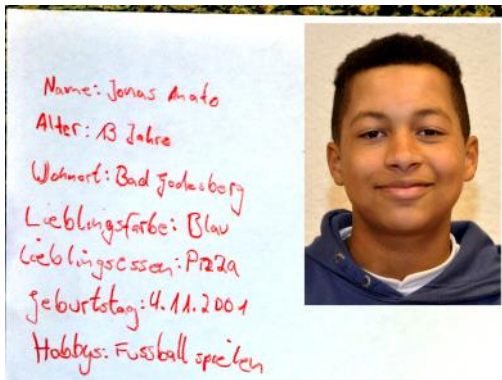 Name: Jonas Amato
Alter: 13 Jahre
Wohnort: Bad Godesberg
Lieblingsfarbe: Blau
Lieblingsessen: Pizza
Geburtstag: 4.11.2001
Hobbys: Fussball spielen